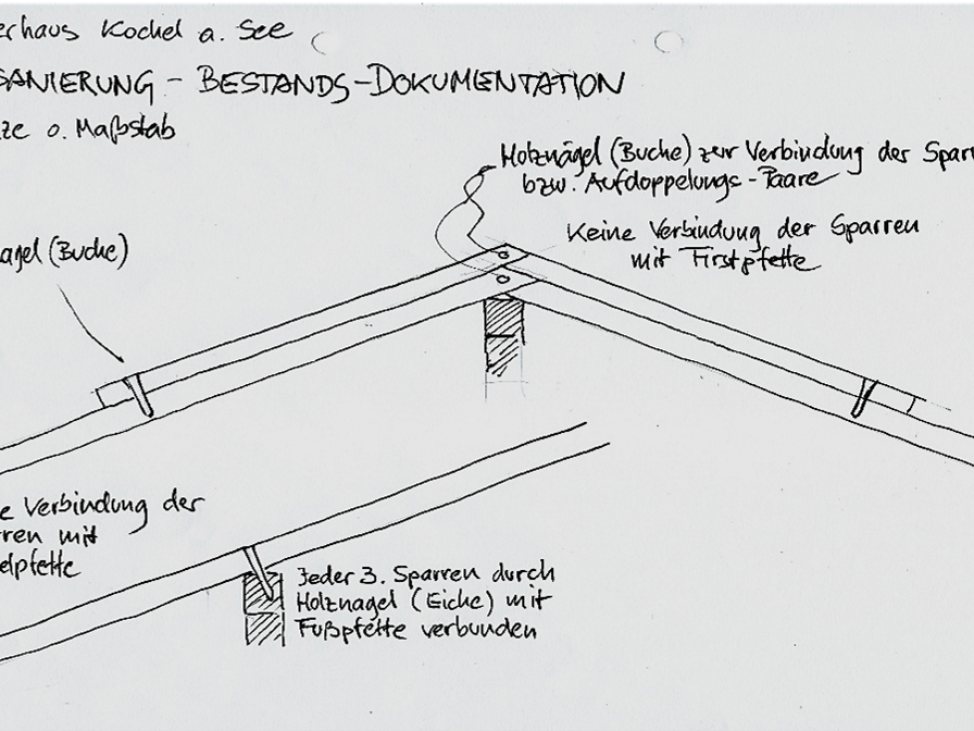 erhaus Kochel a. See
SANIERUNG - BESTANDS-DOKUMENTATION
ze o. Maßstab
Holznägel (Buche) zur Verbindung der Sparr
bzw. Aufdoppelungs-Paare
Keine Verbindung der Sparren
mit Firstpfette
agel (Buche)
e Verbindung der
rren mit
elpfette
Jeder 3. Sparren durch
Holznagel (Eiche) mit
Fußpfette verbunden